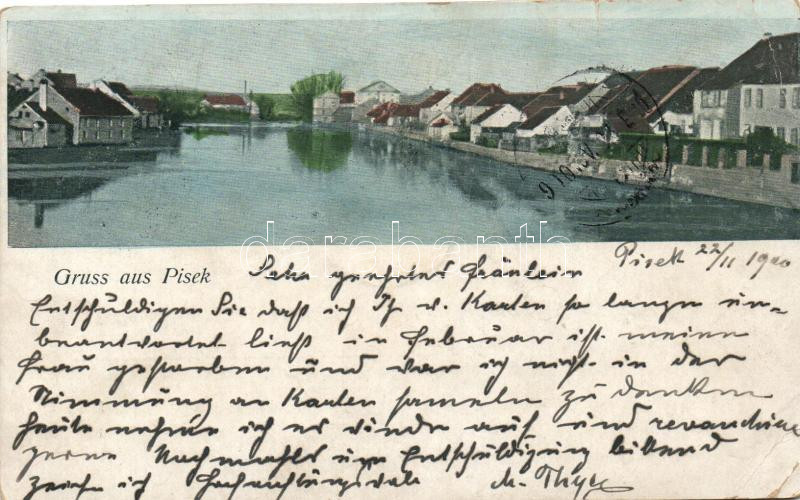 Gruss aus Pisek
Pisek 22/11 1900
Sehr geehrtes Fräulein
Entschuldigen Sie daß ich Ih. v. Karten so lange un-
beantwortet ließ in Februar ist meine
Frau gestorben und war ich nicht in der
Stimmung an Karten sameln zu denken
heute nehme ich es wieder auf und revanchire
gerne Nochmahls um Entschuldigung bittend
zeichne ich Hochachtungsvoll M.
darabanth